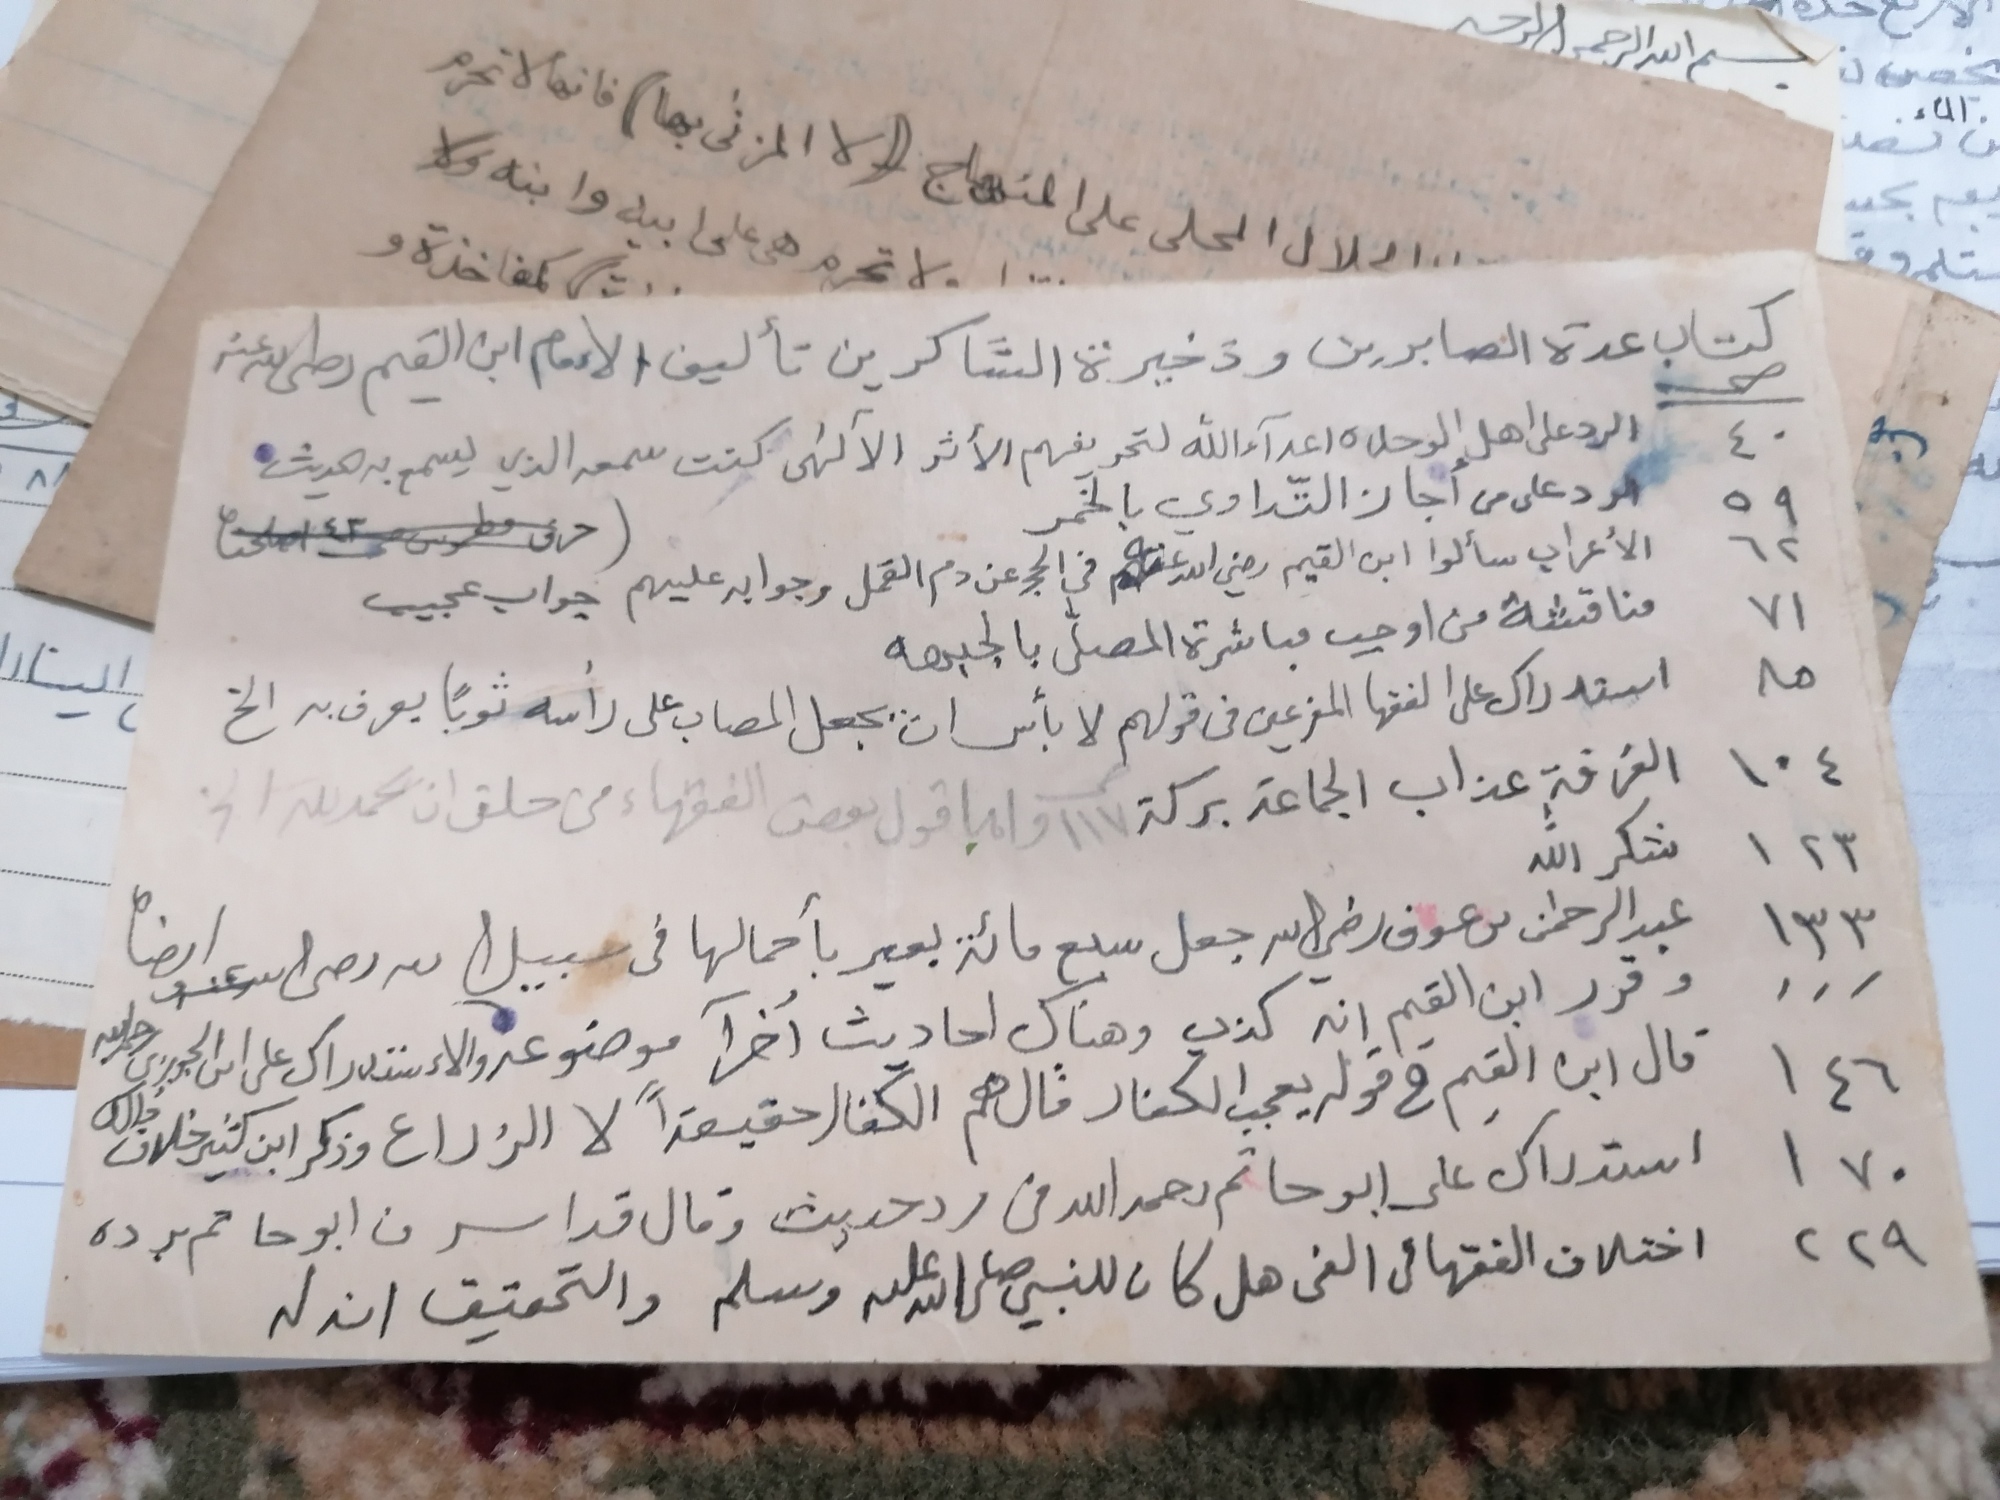 بسم الله الرحمن الرحيم
الجلال المحلى على المنهاج (لا المزنى بها) فانها لا تحرم
ولا تحرم هى على ابيه وابنه
كمفاخذة و
كتاب عدة الصابرين وذخيرة الشاكرين تأليف الإمام ابن القيم رضى الله عنه
صحـ
٤٠ الرد على اهل الوحدة اعدآء الله لتحريفهم الأثر الآلٰهى كنت سمعه الذي يسمع به حديث
(حرف مطموس صح ٤٣ اصلحناه
٥٩ الرد على من أجاز التّداوي بالخمر
٦٢ الأعراب سألوا ابن القيم رضي الله عنه في الحج عن دم القمل وجوابه عليهم جواب عجيب
٧١ مناقشة من اوجب مباشرة المصلّى بالجبهه
٨٥ استدراك على الفقها المفرعين فى قولهم لا بأس ان يجعل المصاب على رأسه ثوبًا يعرف به الخ
١٠٤ الفرقة عذاب الجماعة بركة ١١٧ واما قول بعض الفقهاء من حلق ان يحمد لله الخ
١٢٣ شكر الله
١٣٣ عبد الرحمٰن بن عوف رضي الله جعل سبع مائة بعير بأحمالها فى سبيل الله رضى الله عنه وارضاه
٫٫٫ وقرر ابن القيم انه كذب وهناك احاديث أخرآ موضوعه والاءستدراك على ابن الجوزي رحمه الله
١٤٦ قال ابن القيم في قوله يعجب الكفار قال هم الكفار حقيقةاً لا الزراع وذكر ابن كثير خلاف ذالك
١٧٠ استدراك على ابو حاتم رحمه الله من رد حديث وقال قد اسرف ابو حاتم برده
٢٢٩ اختلاف الفقها فى الفى هل كان للنبي صلى الله عليه وسلم والتحقيق انه له